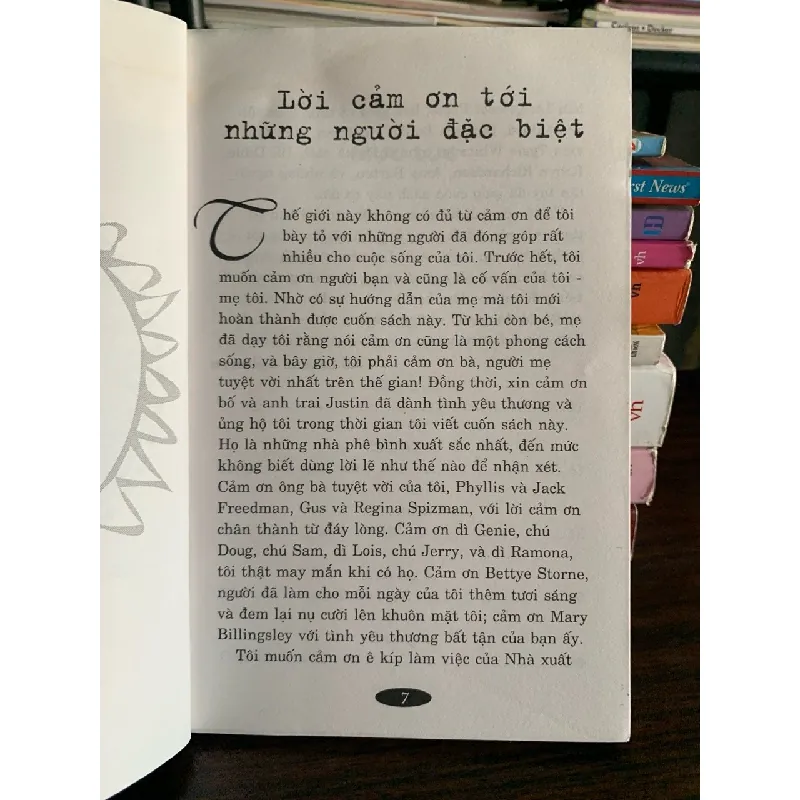 Lời cảm ơn tới
những người đặc biệt
Thế giới này không có đủ từ cảm ơn để tôi
bày tỏ với những người đã đóng góp rất
nhiều cho cuộc sống của tôi. Trước hết, tôi
muốn cảm ơn người bạn và cũng là cố vấn của tôi -
mẹ tôi. Nhờ có sự hướng dẫn của mẹ mà tôi mới
hoàn thành được cuốn sách này. Từ khi còn bé, mẹ
đã dạy tôi rằng nói cảm ơn cũng là một phong cách
sống, và bây giờ, tôi phải cảm ơn bà, người mẹ
tuyệt vời nhất trên thế gian! Đồng thời, xin cảm ơn
bố và anh trai Justin đã dành tình yêu thương và
ủng hộ tôi trong thời gian tôi viết cuốn sách này.
Họ là những nhà phê bình xuất sắc nhất, đến mức
không biết dùng lời lẽ như thế nào để nhận xét.
Cảm ơn ông bà tuyệt vời của tôi, Phyllis và Jack
Freedman, Gus và Regina Spizman, với lời cảm ơn
chân thành từ đáy lòng. Cảm ơn dì Genie, chú
Doug, chú Sam, dì Lois, chú Jerry, và dì Ramona,
tôi thật may mắn khi có họ. Cảm ơn Bettye Storne,
người đã làm cho mỗi ngày của tôi thêm tươi sáng
và đem lại nụ cười lên khuôn mặt tôi; cảm ơn Mary
Billingsley với tình yêu thương bất tận của bạn ấy.
Tôi muốn cảm ơn ê kíp làm việc của Nhà xuất
7
rst News
vh
vh
vn